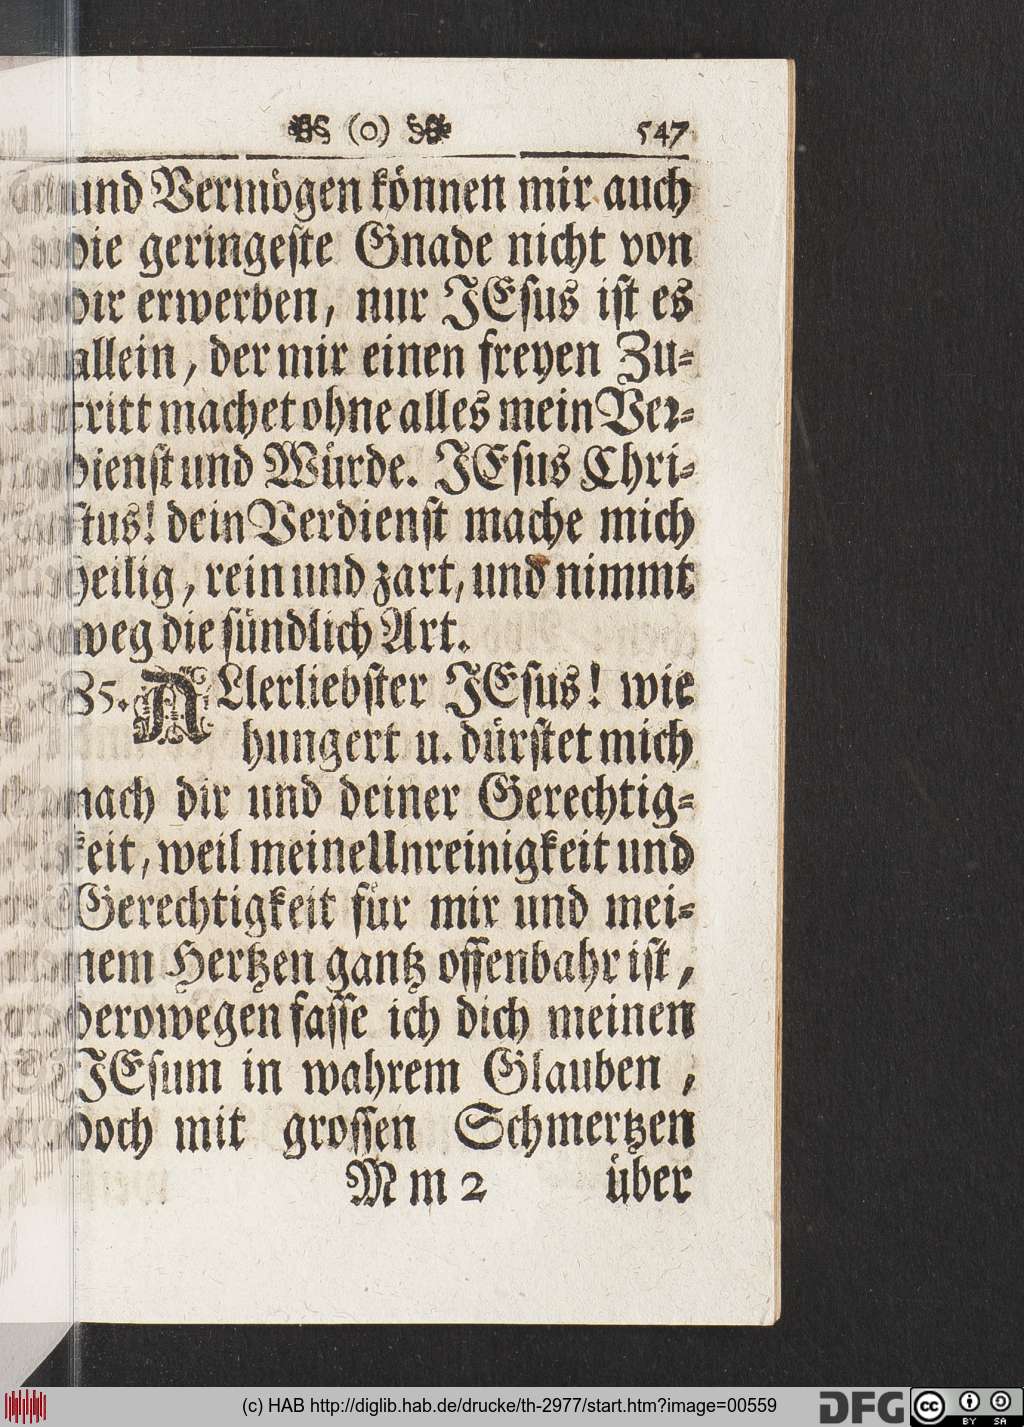 (o) 547
und Vermögen können mir auch
die geringeste Gnade nicht von
dir erwerben, nur JEsus ist es
allein, der mir einen freyen Zu-
tritt machet ohne alles mein Ver-
dienst und Würde. JEsus Chri-
stus! dein Verdienst mache mich
heilig, rein und zart, und nimmt
weg die sündlich Art.
85. ALlerliebster JEsus! wie
hungert u. dürstet mich
nach dir und deiner Gerechtig-
keit, weil meine Unreinigkeit und
Gerechtigkeit für mir und mei-
nem Hertzen gantz offenbahr ist,
derowegen fasse ich dich meinen
JEsum in wahrem Glauben,
doch mit grossen Schmertzen
M m 2 über
(c) HAB http://diglib.hab.de/drucke/th-2977/start.htm?image=00559
DFG cc BY SA